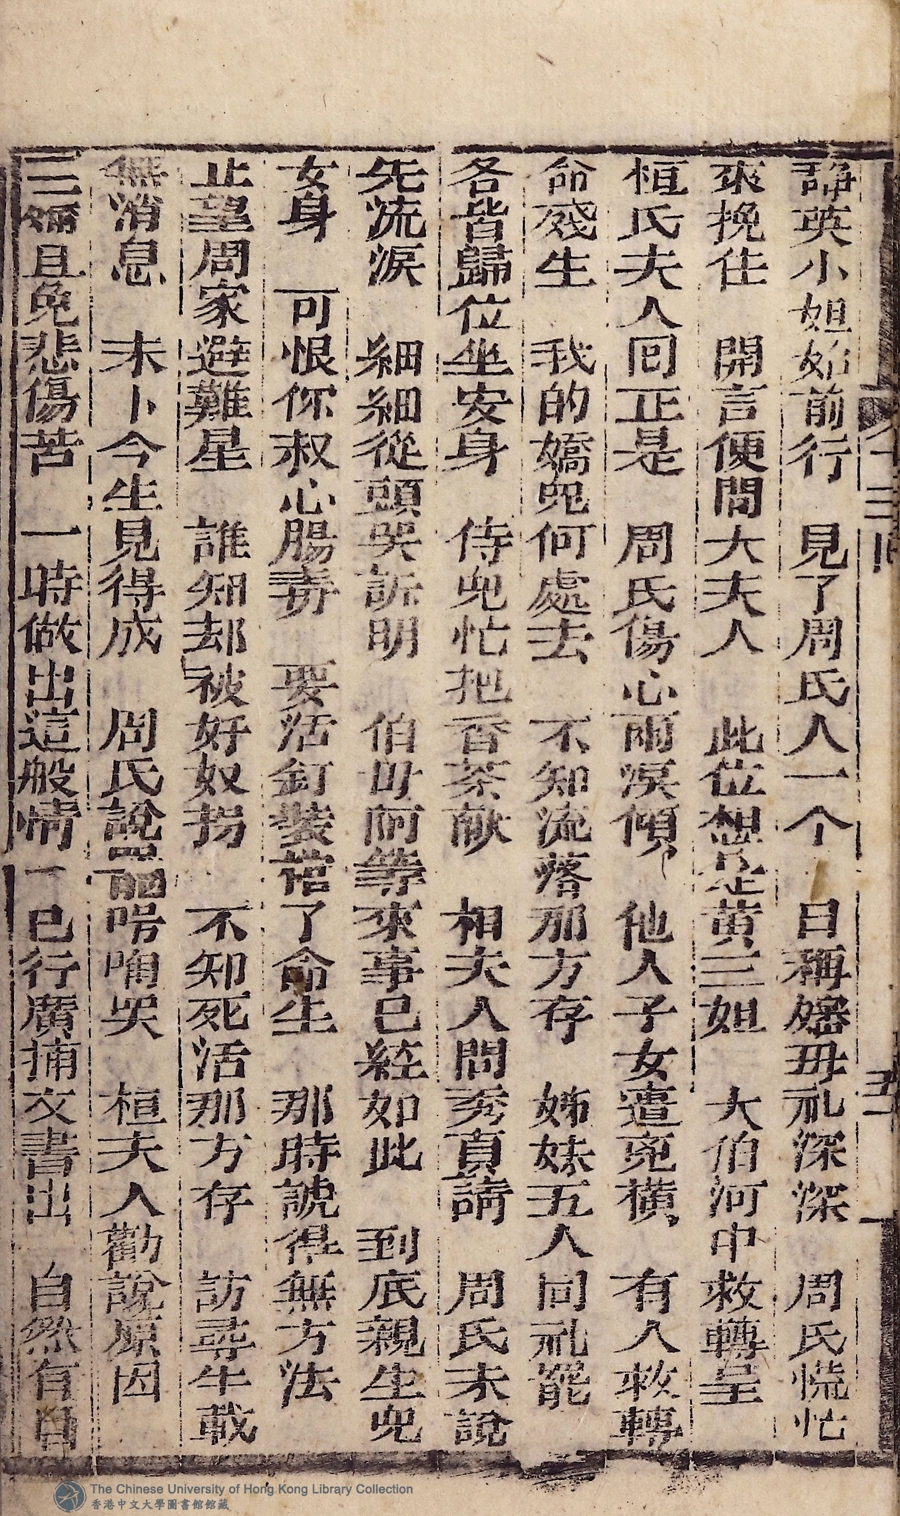 靜英小姐始前行　見了周氏人一个　口稱嬸毋礼深深　周氏慌忙
來挽住　開言便問大夫人　此位想是黄三姐　大伯河中救轉呈
桓氏夫人囘正是　周氏傷心雨淚傾　他人子女遭寃横　有人救轉
命殘生　我的嬌兒何處去　不知流落那方存　姊妹五人同礼罷
各皆歸位坐安身　侍兒忙把香茶献　相夫人問秀貞請　周氏未說
先流淚　細細從頭哭訴明　伯毋阿等來事已經如此　到底親生兒
女身　可恨你叔心腸毒　要活釘裝棺了命生　那時諕得無方法
止望周家避難星　誰知却被奸奴拐　不知死活那方存　訪尋半載
無消息　未卜今生見得成　周氏說罷號啕哭　桓夫人勸說原因
三嬸且免悲傷苦　一時做出這般情　已行廣捕文書出　自然有日
十三囘
五
The Chinese University of Hong Kong Library Collection
香港中文大學圖書館館藏